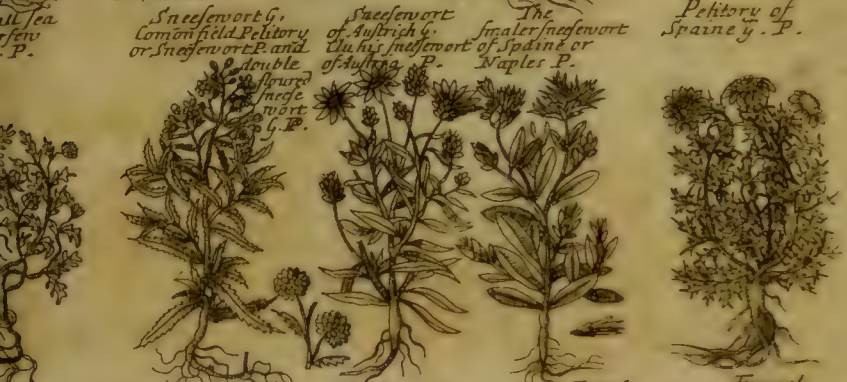 all sea
P.
Sneesewort G.
Comon field Pelitory
or Sneesewort P. and
double
floured
sneese
wort
G. P.
Sneesewort
of Austrich G.
Clusius sneesewort
of Austria P.
The
smaler sneesewort
of Spaine or
Naples P.
Pelitory of
Spaine G. P.